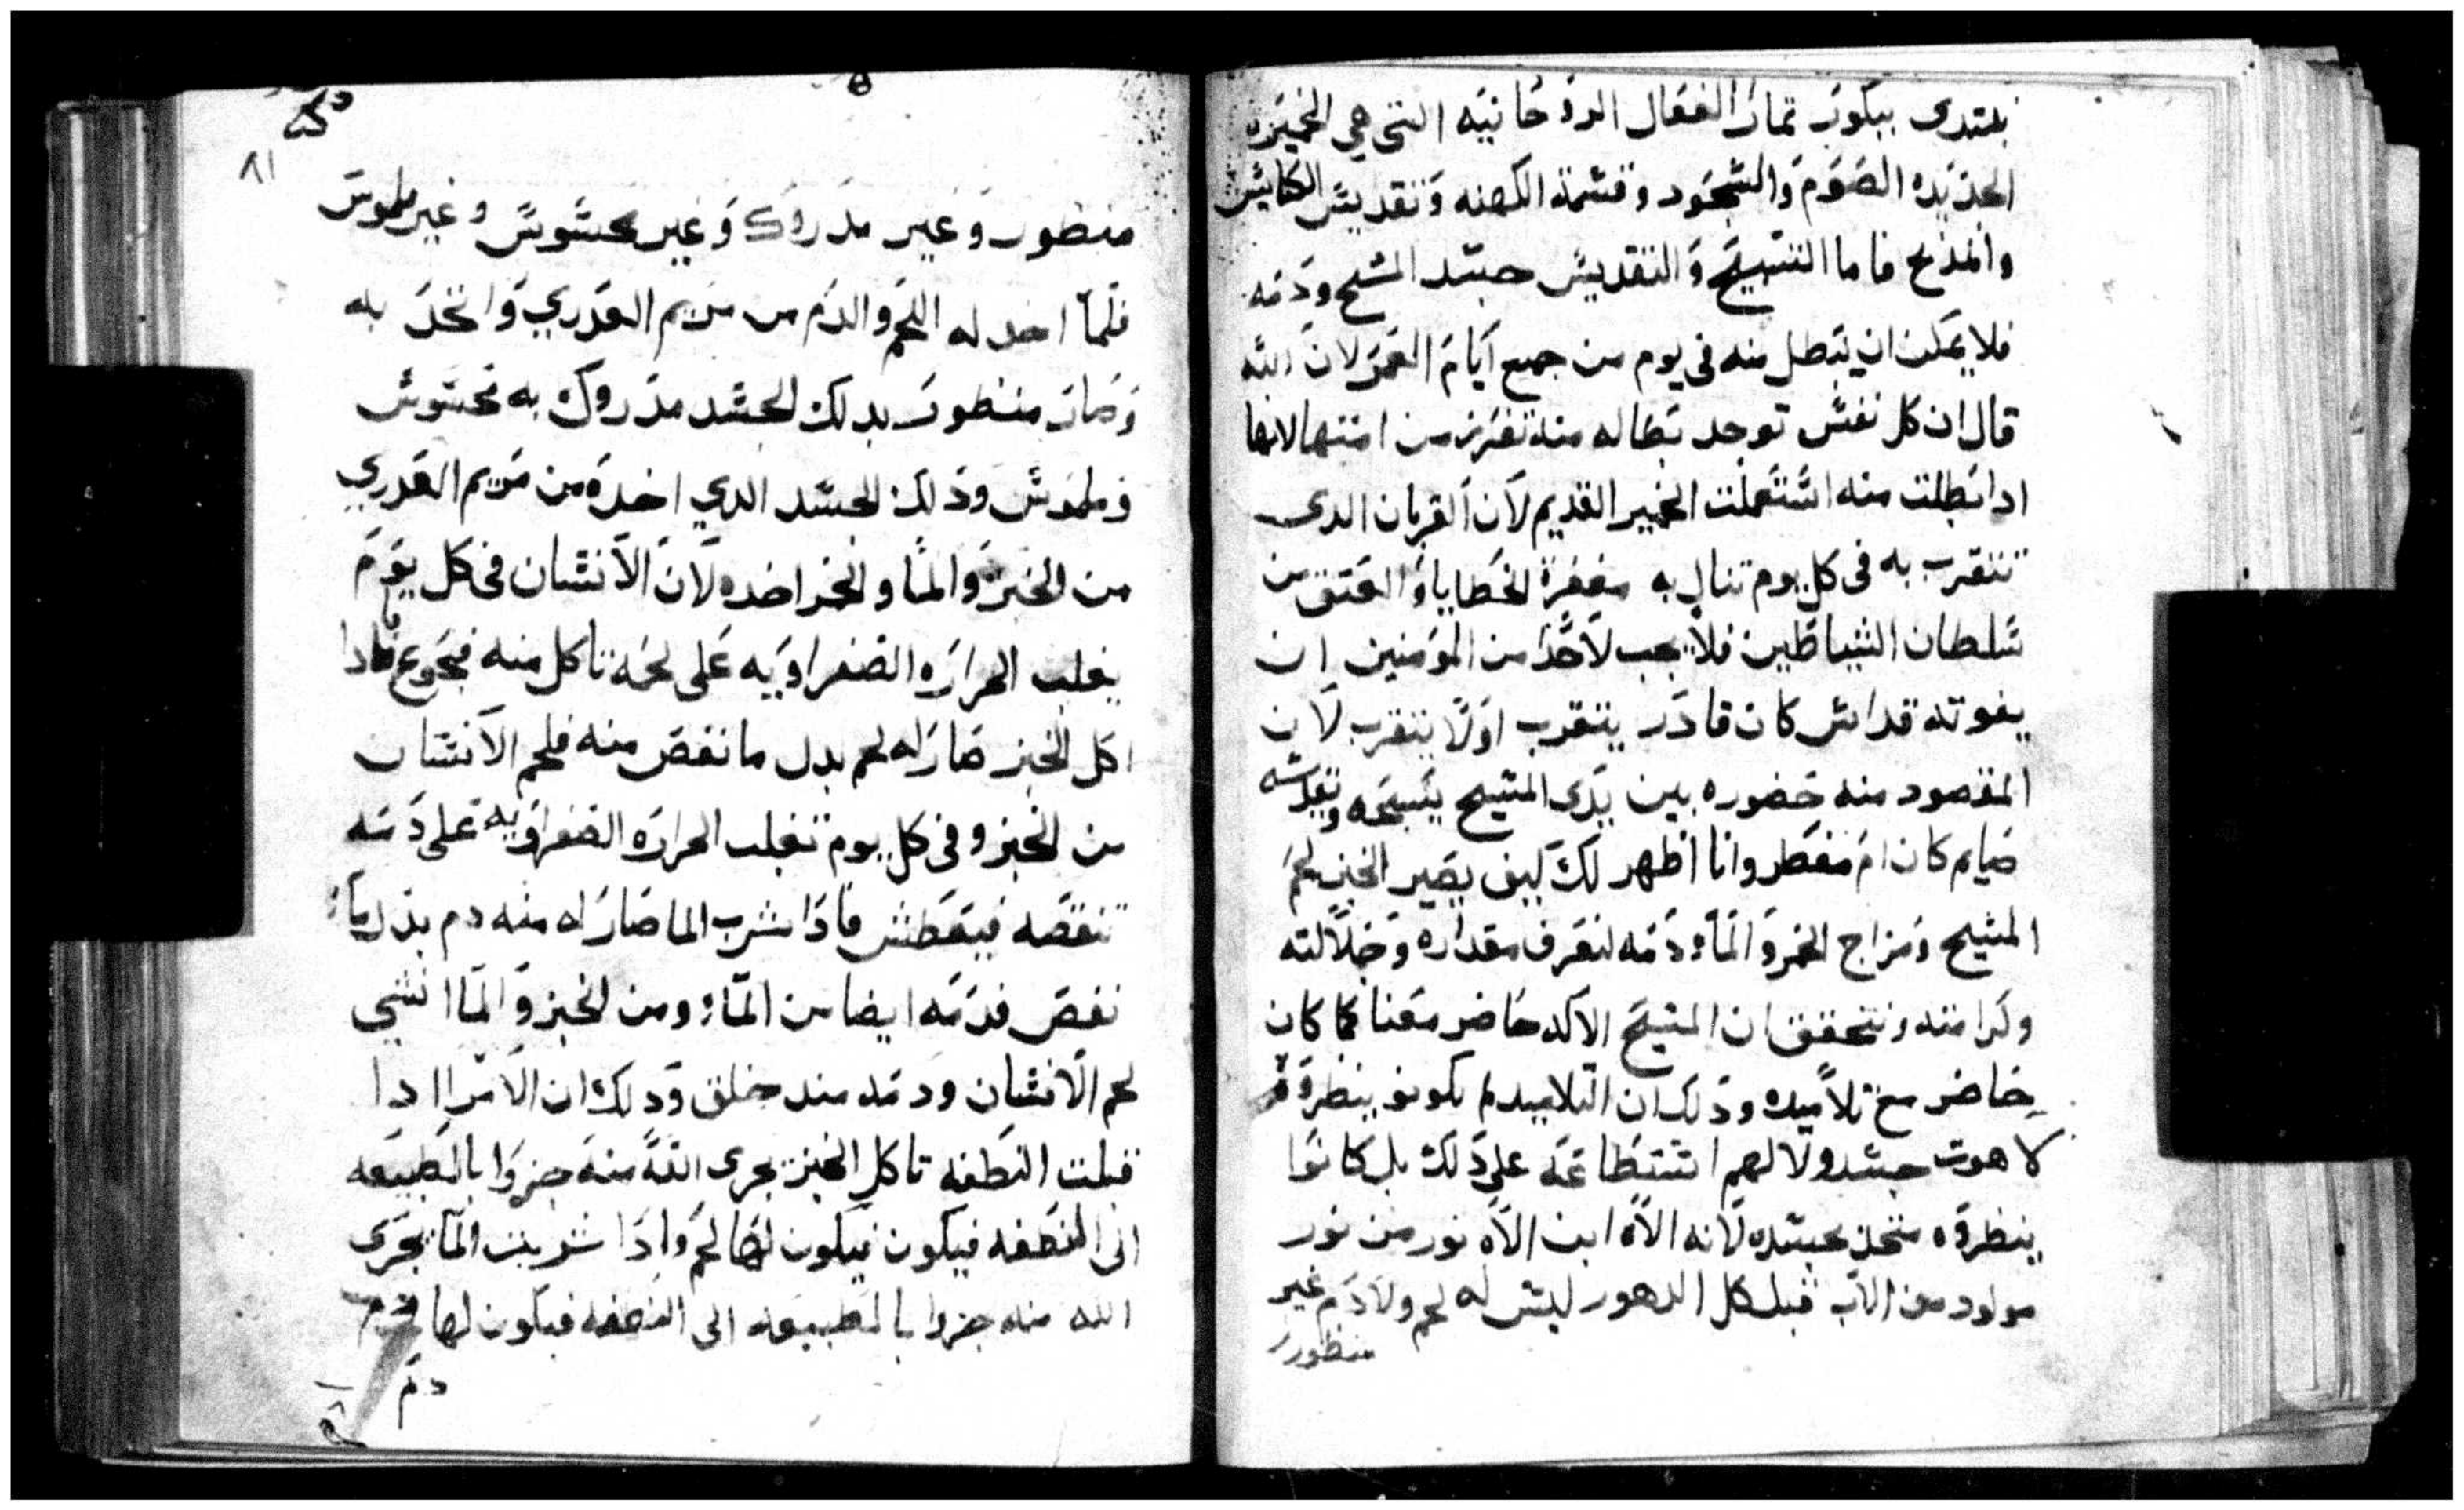 نبتدى ببكور تمار الفعال الروحانيه التى هي الخميره
الجديده الصوم والسجود وقسمة الكهنه وتقديس الكنايس
والمذبح فاما التسبيح والتقديس جسد المسيح ودمه
فلا يمكن ان يبطل منه فى يوم من جميع ايام العمر لان الله
قال ان كل نفس توجد بطاله منه تفرز من امتها لانها
ادا بطلت منه استعملت الخمير القديم لان القربان الدى
نتقرب به فى كل يوم تنال به مغفرة الخطايا والعتق من
سلطان الشياطين فلا يجب لاحد من المومنين ان
يفوته قداس كان قادر يتقرب اولا يتقرب لان
المقصود منه حضوره بين يدى المسيح يسبحه ويقدسه
صايم كان ام مفطر وانا اظهر لك كيف يصير الخبز لحم
المسيح ومزاج الخمر والماء دمه لتعرف مقداره وجلالته
وكرامته وتتحقق ان المسيح الاله حاضر معنا كما كان
حاضر مع تلاميده ودلك ان التلاميد لم يكونو ينظروه
لاهوت جسد ولا لهم استطاعه على دلك بل كانوا
ينظروه متحد بجسده لانه الاه ابن الاه نور من نور
مولود من الاب قبل كل الدهور ليس له لحم ولا دم غير
منظور
٨١
منظور وغير مدروك وغير محسوس وغير ملموس
فلما اخد له اللحم والدم من مريم العدري واتحد به
وصار منظور بدلك الجسد مدروك به محسوس
وملموس ودلك الجسد الدي اخده من مريم العدري
من الخبز والما والخمر اخده لان الانسان فى كل يوم
يغلب الحراره الصفراويه على لحمه تاكل منه فيجوع فادا
اكل الخبز صار له لحم بدل ما نقص منه فلحم الانسان
من الخبز وفى كل يوم تغلب الحراره الصفراويه على دمه
تنقصه فيعطش فادا شرب الما صار له منه دم بدل ما
نقص فدمه ايضا من الماء ومن الخبز والما انشي
لحم الانسان ودمه مند خلق ودلك ان الامراه ادا
قبلت النطفه تاكل الخبز يجرى الله منه جزوا بالطبيعه
الى النطفه فيكون فيكون لها لحم وادا شربت الما يجرى
الله منه جزوا بالطبيعه الى النطفه فيكون لها
دم